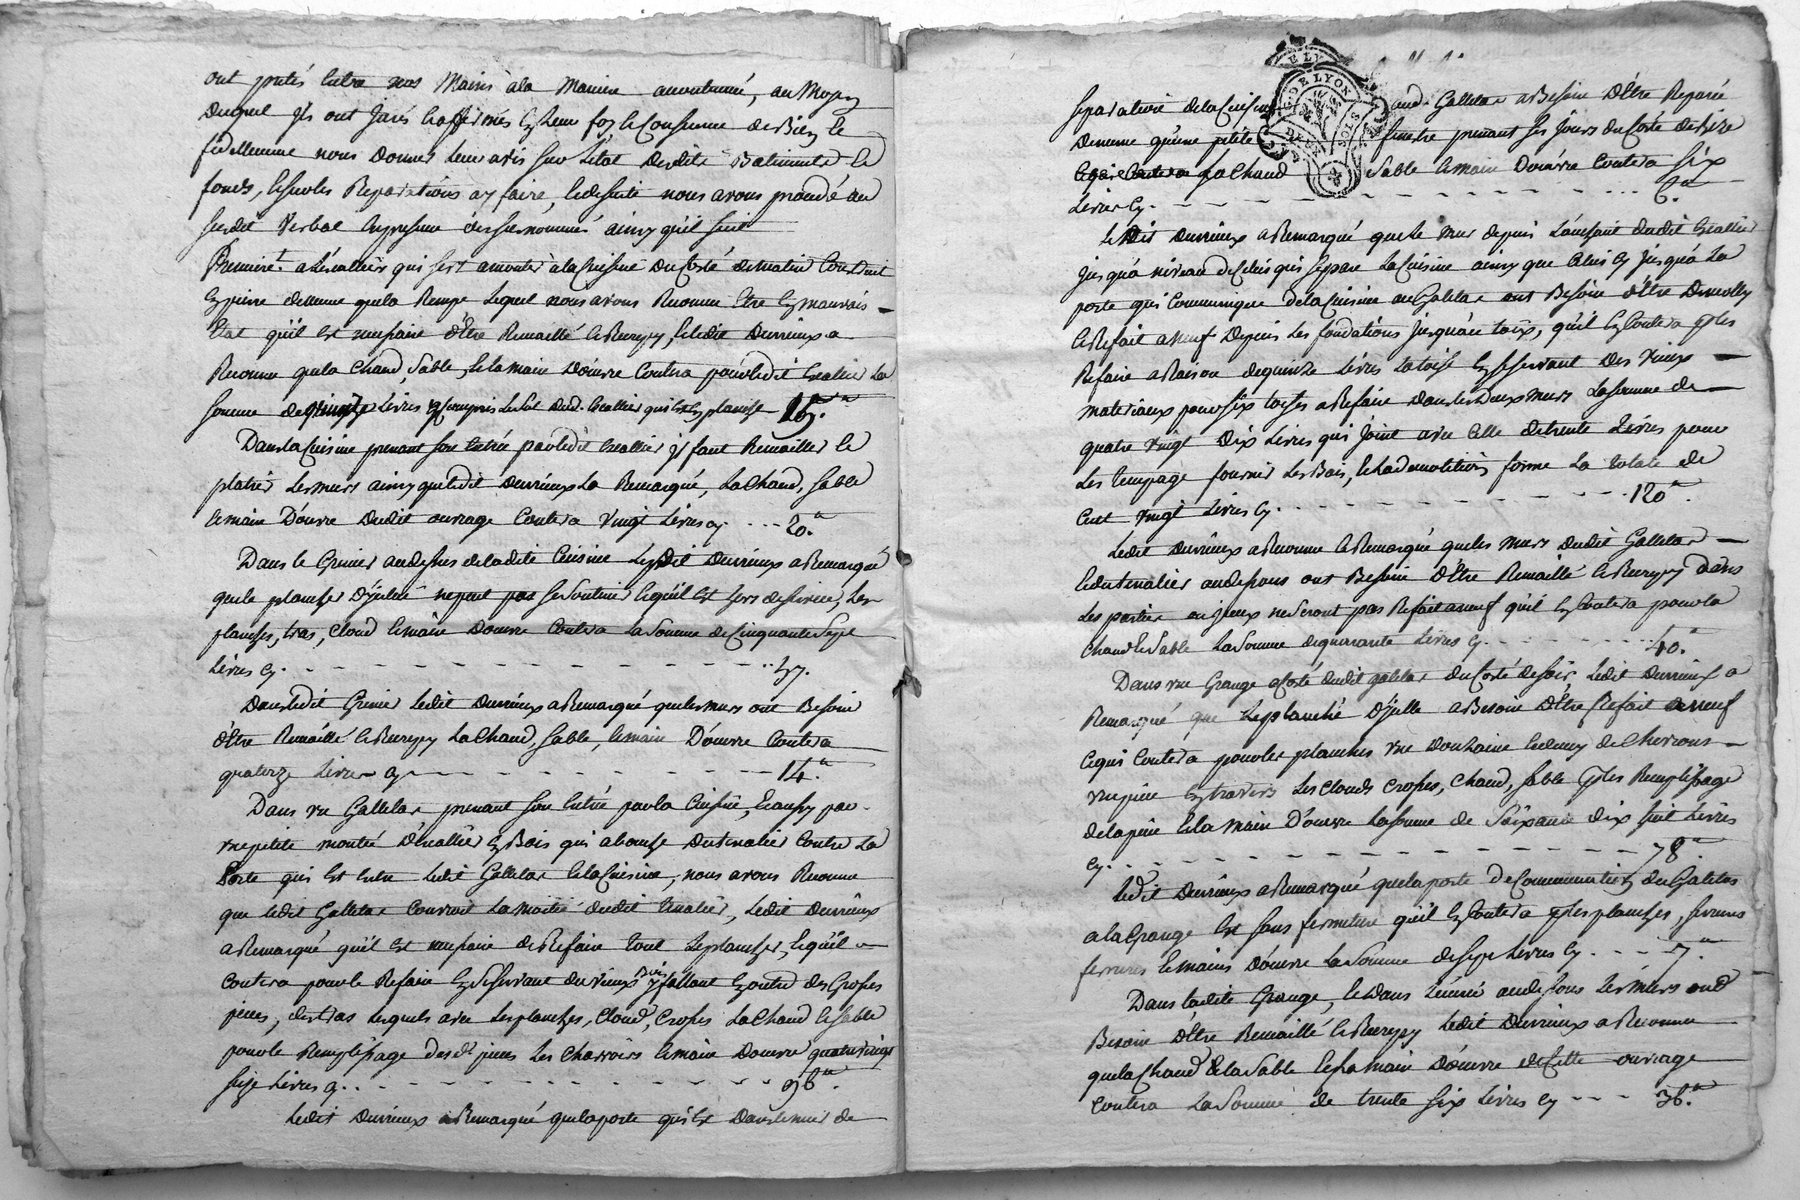 ont prêté entre nos Mains à la Maniere accoutumée, au Moyen
Duquel Ils ont Jurés & affirmés En Leur foy & Conscience de Bien &
fidellement nous Donner Leur avis sur L'état desdits Batiments &
fonds, & sur les Reparations a y faire, & de suite nous avons procédé au
susdit Verbal En presence des susnommés ainsy qu'il suit
Premierement a L'escallier qui sert a monter à la Cuisine Du Costé de matin Construit
En pierre de meme que la Rempe Lequel nous avons Reconnu être En mauvais
Etat qu'il est necessaire d'Etre Remaillé & Recrepy, & ledit Durrieux a
Reconnu que la Chaud, Sable, & la main D'oeuvre Coutera pour ledit Escallier La
somme de quinze Livres y compris Le Sol Dud. Escallier qui est En planche 15.#
Dans la Cuisine prenant son Entrée par ledit Escallier il faut Remailler &
platrir Les murs ainsy que ledit Durrieux La Remarqué, La Chaud, Sable
& main D'ouvre Dudit ouvrage Coutera Vingt Livres cy - - - 20.#
Dans le Grenier au dessus de la dite Cuisine Ledit Durrieux a Remarqué
que le plancher D'ycelui ne peut pas se Soutenir & qu'il est hors de service, Les
planches, tras, Cloud & main D'ouvre Coutera La Somme de Cinquante Sept
Livres cy - - - 57.
Dans ledit Grenier Ledit Durrieux a Remarqué que les murs ont Besoin
d'Etre Remaillé & Recrepy La Chaud, Sable, & main D'ouvre Coutera
quatorze Livres cy - - - 14.#
Dans un Galletas prenant son Entrée par la Cuisine, & aussy par
une petite montée d'Escallier En Bois qui aboutit Contre La
Porte qui est Entre Ledit Galletas & la Cuisine, nous avons Reconnu
que ledit Galletas Couvroit La moitié dudit , Ledit Durrieux
a Remarqué qu'il est necessaire de Refaire tout Le plancher, & qu'il
Coutera pour le Refaire En se servant du vieux Bois y fallant En outre des Grosses
pieces, des tras Lesquels avec Les planches, Cloud, Crosses La Chaud & Sable
pour le Remplissage des dt pieces Les Charrois & main D'ouvre quatre vingt
seize Livres cy - - - 96.#
Ledit Durrieux a Remarqué que la porte qui est Dans le mur de
separation de la Cuisine aud. Galletas a Besoin D'Etre Reparée
De meme qu'une petite fenetre prenant ses Jours du Costé de bize
La Chaud Sable & main D'ouvre Coutera Six
Livres cy - - - 6.#
Ledit Durrieux a Remarqué que Le mur depuis L'angle dudit Escallier
Jusqu'a niveau de Celui qui separe La Cuisine ainsy que Celui cy Jusqu'a La
porte qui Communique de la Cuisine au Galletas ont Besoin d'Etre Demolly
& Refait a neuf Depuis Les fondations Jusqu'au toix, qu'il En Coutera p. les
Refaire a Raison de quinze Livres La toise En se servant Des Vieux
materiaux pour six toises a Refaire dans les Deux murs La somme de
quatre Vingt Dix Livres qui Joint avec Celle de trente Livres pour
Les Etempage fournir Les Bois, & La demolition forme La totale de
Cent Vingt Livres cy - - - 120#.
Ledit Durrieux a Reconnu & Remarqué que les murs Dudit Galletas
& du au dessous ont Besoin d'Etre Remaillé & Recrepy Dans
Les parties ou ils ne Seront pas Refait a neuf qu'il En Coutera pour la
Chaud & Sable La Somme de quarante Livres cy - - - 40.#
Dans une Grange a Costé dudit galletas du Costé de soir, Ledit Durrieux a
Remarqué que Le planché D'ycelle a Besoin D'Etre Refait a neuf
Ce qui Coutera pour les planches une Douzaine & demy de Chevrons
une piece En travers Les Clouds Crosses, Chaud, Sable p. les Remplissage
de la piece & la main D'ouvre La somme de Soixante dix huit Livres
cy - - - 78.#
Ledit Durrieux a Remarqué que la porte de Communication du Galletas
a la Grange est sans fermeture qu'il En Coutera p. les planches, serrures
ferrures & mains D'ouvre La Somme de Sept Livres cy - - - 7.#
Dans ladite Grange, & dans L'écurie au dessous Les murs ont
Besoin d'Etre Remaillé & Recrepy Ledit Durrieux a Reconnu
que la Chaud & la Sable & la main D'ouvre de Cette ouvrage
Coutera La Somme de trente six Livres cy - - - 36.#
G. DE LYON
DEUX SOLS